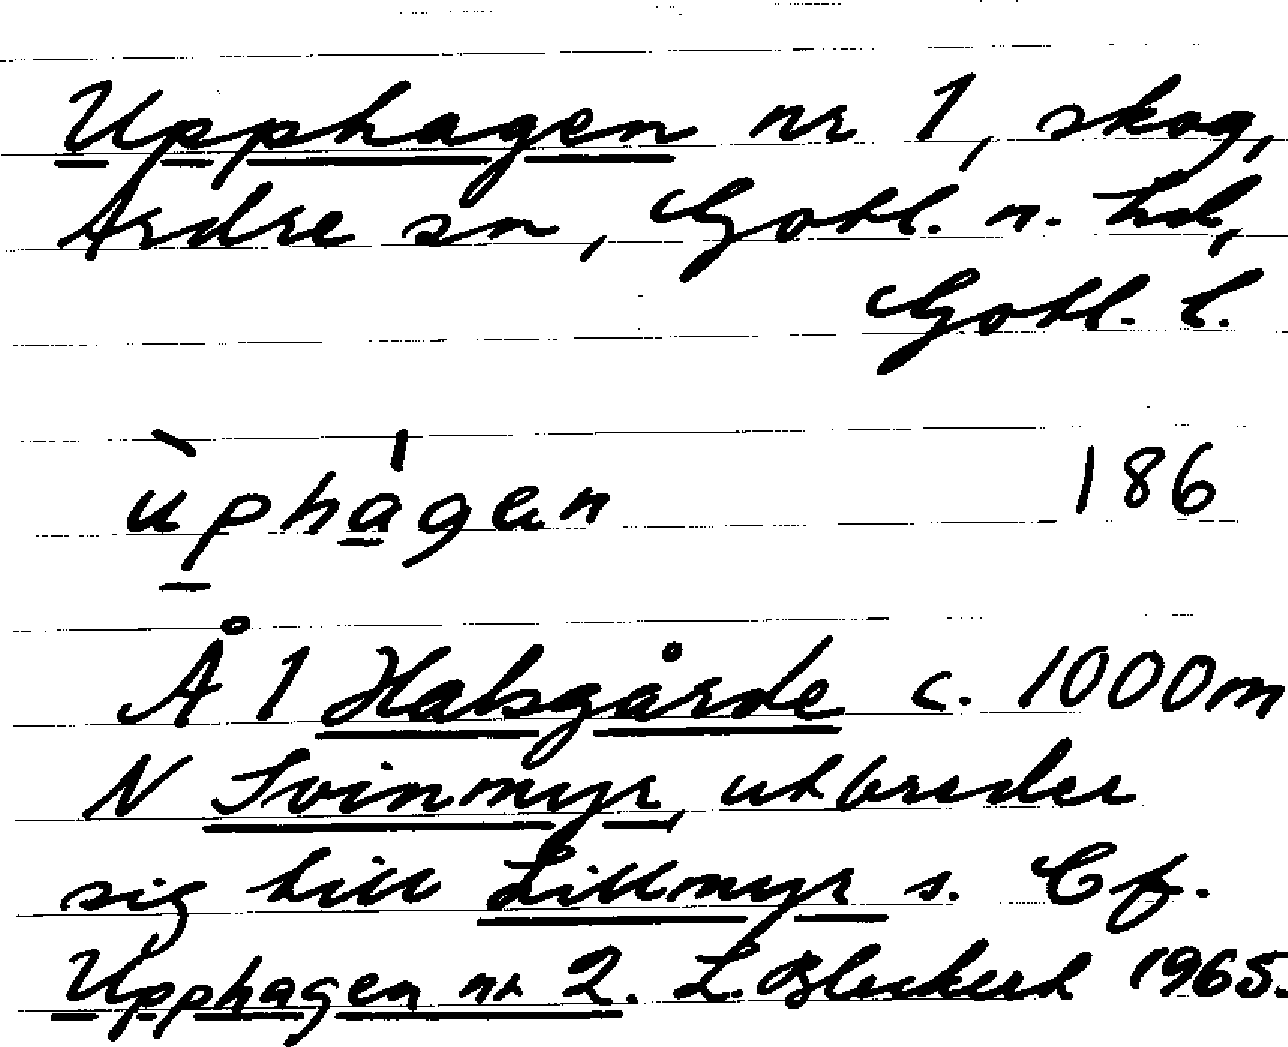 Upphagen nr 1, skog,
Ardre sn, Gotl. n. hd,
Gotl. l.
ùphágen 186
Å 1 Halsgårde c. 1000 m
N Svinmyr, utbreder
sig till Lillmyr s. Cf.
Upphagen nr 2. L. Bleckert 1965.